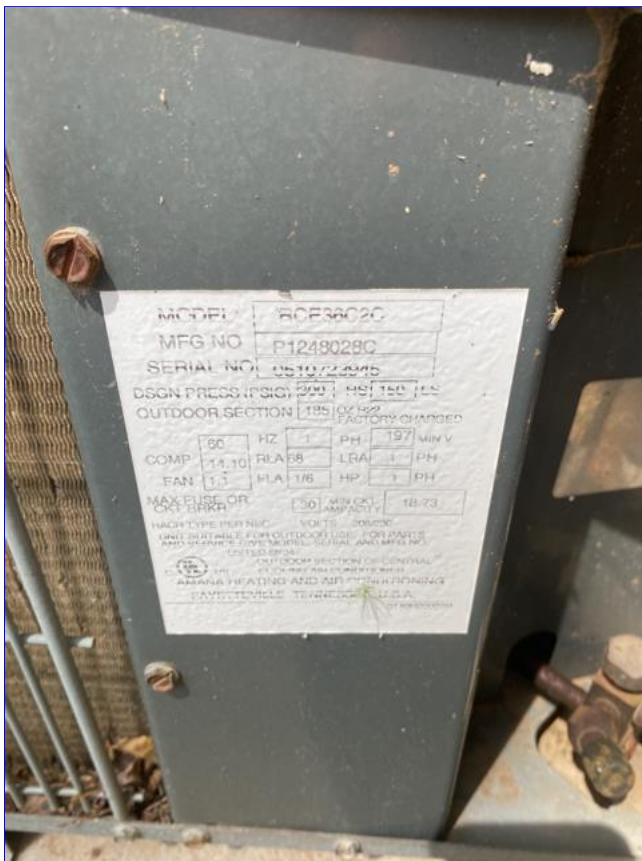 MODEL RCE36C2C
MFG NO P1248028C
SERIAL NO 0510723945
DSGN PRESS (PSIG) 300 HS 150 LS
OUTDOOR SECTION 185 OZ R22
FACTORY CHARGED
60 HZ 1 PH 197 MIN V
COMP 14.10 RLA 68 LRA 1 PH
FAN 1.1 FLA 1/6 HP 1 PH
MAX FUSE OR
CKT BRKR 30 MIN CKT
AMPACITY 18.73
HACR TYPE PER NEC VOLTS 208/230
UNIT SUITABLE FOR OUTDOOR USE. FOR PARTS
AND SERVICE GIVE MODEL, SERIAL AND MFG NO.
LISTED
OUTDOOR SECTION OF CENTRAL
COOLING AIR CONDITIONER
AMANA HEATING AND AIR CONDITIONING
FAYETTEVILLE TENNESSEE U.S.A.